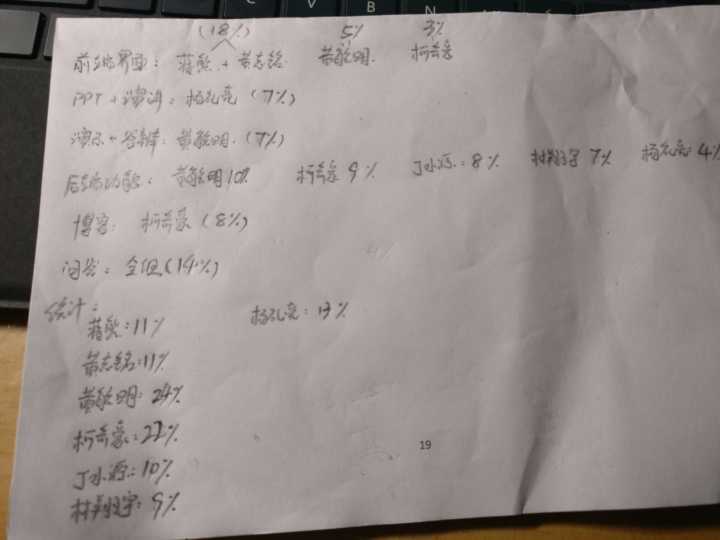 (18%) 5% 3%
前端界面： 蒋熊 + 黄志铭 黄敏明 柯奇豪
PPT + 演讲： 杨孔亮 (7%)
演示 + 答辩： 黄敏明. (7%)
后端功能： 黄敏明10% 柯奇豪 9% 丁水源： 8% 林翔宇 7% 杨孔亮 4%
博客： 柯奇豪 (8%)
问答： 全组 (14%)
统计：
蒋熊：11% 杨孔亮： 13%
黄志铭：11%
黄敏明： 24%
柯奇豪：22%
丁水源：10%
林翔宇： 9%
19